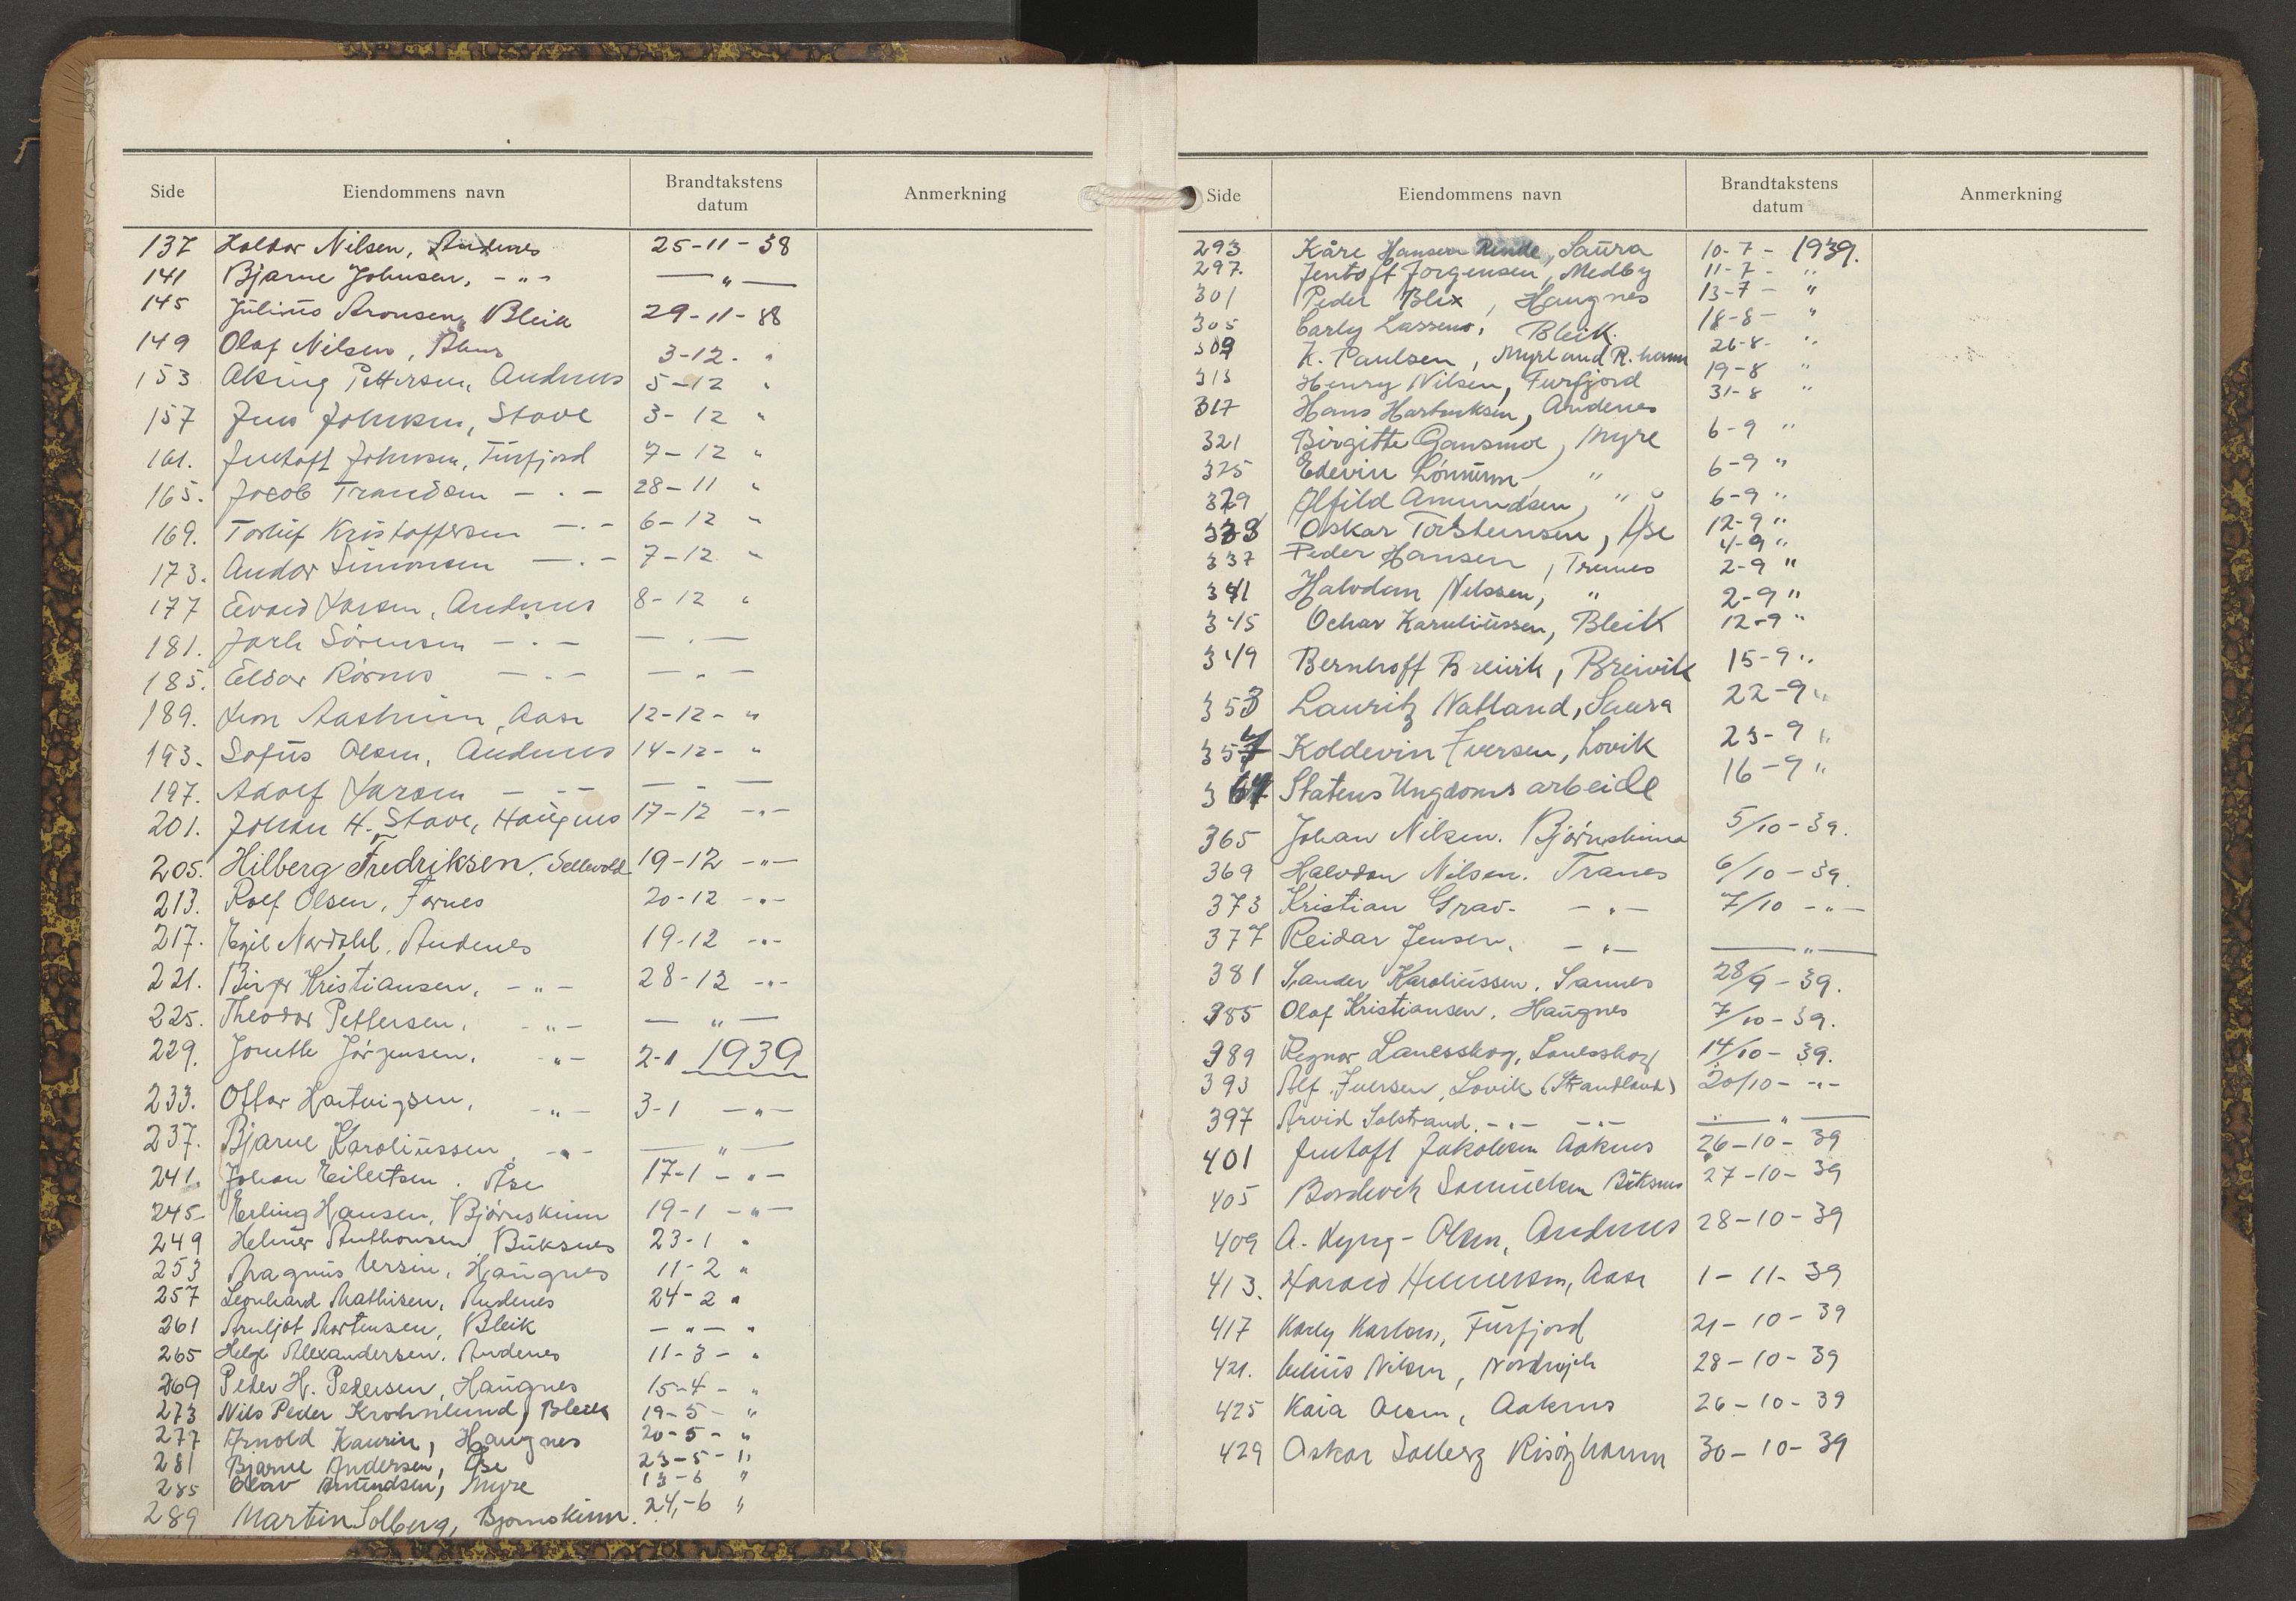 Side Eiendommens navn Brandtakstens datum Anmerkning
137 Haldor Nilsen, Andenes 25-11-38
141 Bjarne Johnsen, -"- —"—
145 Julius Aronsen, Bleik 29-11-38
149 Olaf Nilsen, 3-12- "
153 Pettersen, Andenes 5-12 "
157 Jens Johnsen, Stave 3-12 "
161. Jentoft Johnsen, Furfjord 7-12 "
165. Jacob Trondsen -"- 28-11 "
169. Torleif Kristoffersen -"- 6-12 "
173. Andor Simonsen -"- 7-12 "
177 Larsen, Andenes 8-12 "
181. Jarle Sörensen -"- -"-
185. Eldor Rörnes -"- -"-
189. Aasheim, Aase 12-12- "
193. Sofus Olsen, Andenes 14-12- "
197. Adolf Larsen -"- -"-
201. Johan H. Stave, Haugnes 17-12 -"-
205. Hilberg Fredriksen, Sellevold 19-12 -"-
213. Rolf Olsen, Fornes 20-12 -"-
217. Egil Nordahl, Andenes 19-12 -"-
221. Birger Kristiansen, -"- 28-12 -"-
225. Theodor Pettersen, -"- -"-
229. Jonette Jörgensen, -"- 2-1 1939
233. Ottar Hartvigsen, -"- 3-1 -"-
237. Bjarne Karoliussen, -"- -"-
241. Johan Eilertsen. Åse 17-1 -"-
245- Erling Hansen, Bjørnskinn 19-1 -"-
249 Helmer Anthonsen Buksnes 23-1 "
253 Magnus Ursin, Haugnes 11-2 "
257 Leonhard Mathisen, Andenes 24-2 "
261 Arnljot Mortensen, Bleik -"- "
265 Helge Alexandersen, Andenes 11-3- "
269 Peder H. Pedersen, Haugnes 15-4- "
273 Nils Peder Krohnlund, Bleik 19-5- "
277 Arnold Kaurin, Haugnes 20-5- "
281 Bjarne Andersen, Åse 23-5- "
285 Olav Amundsen, Myre 13-6 "
289 Martin Solberg, Bjornskinn. 24,-6 "
Side Eiendommens navn Brandtakstens datum Anmerkning
293 Kåre Hansen Rinde, Saura 10-7- 1939.
297. Jentoft Jorgensen, Medby 11-7- "
301 Peder Blix, Haugnes 13-7- "
305 Carly Lassen, Bleik 18-8- "
309 K. Paulsen, Myrland R. havn 26-8- "
313 Henry Nilsen, Furfjord 19-8 "
317 Hans Andenes 31-8 "
321 Birgitte Gansmoe, Myre 6-9 "
325 Edevin " 6-9 "
329 Alfild Amundsen, " 6-9 "
333 Oskar Torsteinsen, Åse 12-9 "
337 Peder Hansen, Tranes 4-9 "
341 Halvdan Nilssen, " 2-9 "
2-9 "
345 Karoliussen, Bleik 12-9 "
349 Bernhoff Breivik, Breivik 15-9 "
353 Lauritz Natland, Saura 22-9 "
357 Koldevin Iversen, Lovik 23-9 "
361 Statens Ungdoms arbeide 16-9 "
365 Johan Nilsen. Bjørnskinn 5/10-39.
369 Halvdan Nilsen. Tranes 6/10-39.
373 Kristian Grav- -"- 7/10 -"-
377 Reidar Jensen, -"- —"—
381 Sander Karoliussen, Sannes 28/9-39.
385 Olaf Kristiansen, Haugnes 7/10-39.
389 Regnor Lanesskog, Lanesskog 14/10-39.
393 Alf. Iversen, Lovik (Strandland) 20/10- -"-
397 Arvid Solstrand. -"- -"- -"-
401 Jentoft Jakobsen Aaknes 26-10-39
405 Bordevik Samuelsen Buksnes 27-10-39
409 A. Lyng-Olsen, Andenes 28-10-39
413. Harald Helmersen, Aase 1-11-39
417 Karly Karlsen, Furfjord 21-10-39
421. Nilsen, 28-10-39
425 Kaia Olsen, Aaknes 26-10-39
429 Oskar Solberg Risøyhamn 30-10-39